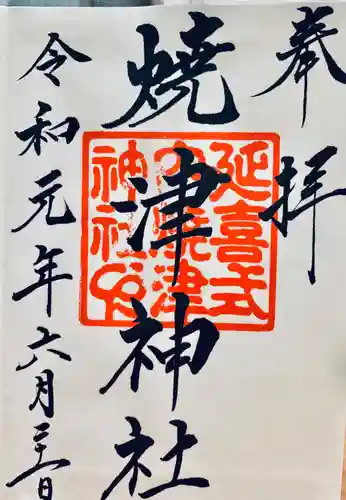 奉拝
延喜式
内焼津
神社印
焼津神社
令和元年六月 日